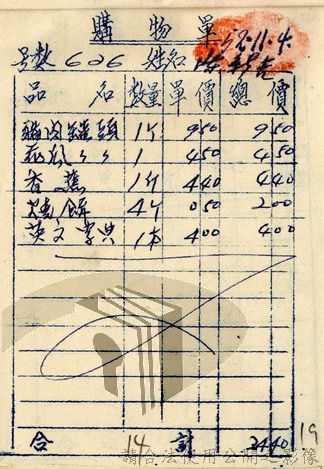 購物單
52.11.4.
号数 626 姓名
品名 數量 單價 總價
豬肉罐頭 1个 950 950
〃〃 1 450 450
香蕉 1个 440 440
燒餅 4个 050 200
英文字典 1本 400 400
合 14 計 2440
19
請合法使用公開之影像